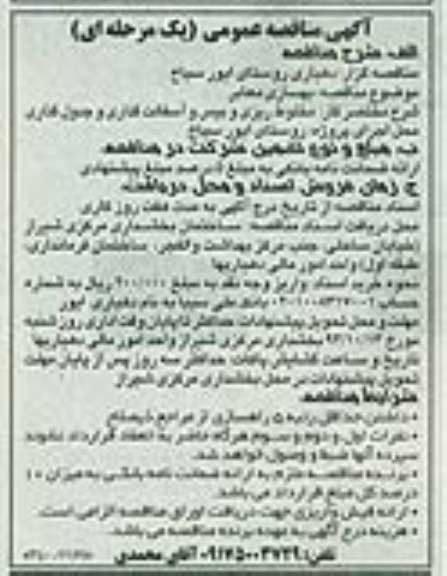 آگهی مناقصه عمومی (یک مرحله ای)
الف. شرح مناقصه
مناقصه گزار: دهیاری روستای ابور سیاخ
موضوع مناقصه: بهسازی معابر
شرح مختصر کار: مخلوط ریزی و بیس و آسفالت کاری و جدول گذاری
محل اجرای پروژه: روستای ابور سیاخ
ب. مبلغ و نوع تضمین شرکت در مناقصه
ارائه ضمانت نامه بانکی به مبلغ ۵ درصد مبلغ پیشنهادی
ج. زمان فروش اسناد و محل دریافت:
اسناد مناقصه از تاریخ درج آگهی به مدت هفت روز کاری
محل دریافت اسناد مناقصه: ساختمان بخشداری مرکزی شیراز
(خیابان ساحلی، جنب مرکز بهداشت والفجر، ساختمان فرمانداری،
طبقه اول) واحد امور مالی دهیاریها
نحوه خرید اسناد: واریز وجه نقد به مبلغ ۲۰۰/۰۰۰ ریال به شماره
حساب بانک ملی سیبا به نام دهیاری ابور
مهلت و محل تحویل پیشنهادات: حداکثر تا پایان وقت اداری روز شنبه
مورخ بخشداری مرکزی شیراز واحد امور مالی دهیاریها
تاریخ و ساعت گشایش پاکات: حداکثر سه روز پس از پایان مهلت
تحویل پیشنهادات در محل بخشداری مرکزی شیراز
شرایط مناقصه
• داشتن حداقل رتبه ۵ راهسازی از مراجع ذیصلاح
• نفرات اول و دوم و سوم هرگاه حاضر به انعقاد قرارداد نشوند
سپرده آنها ضبط و وصول خواهد شد.
• برنده مناقصه ملزم به ارائه ضمانت نامه بانکی به میزان ۱۰
درصد کل مبلغ قرارداد می باشد.
• ارائه فیش واریزی جهت دریافت اوراق مناقصه الزامی است.
• هزینه درج آگهی به عهده برنده مناقصه می باشد.
تلفن: ۰۹۱۷۵۰۰۳۷۲۹ آقای محمدی